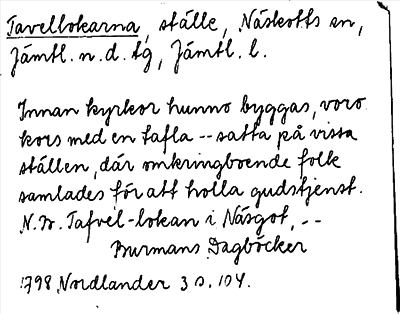 Tavellokarna, ställe, Näskotts sn,
Jämtl. n. d. tg, Jämtl. l.
Innan kyrkor hunno byggas, voro
kors med en tafla -- satta på vissa
ställen, där omkringboende folk
samlades för att holla gudstjenst.
N.B. Tafvel-lokan i Näsgot, --
Burmans Dagböcker
1798, Nordlander 3 s. 104.